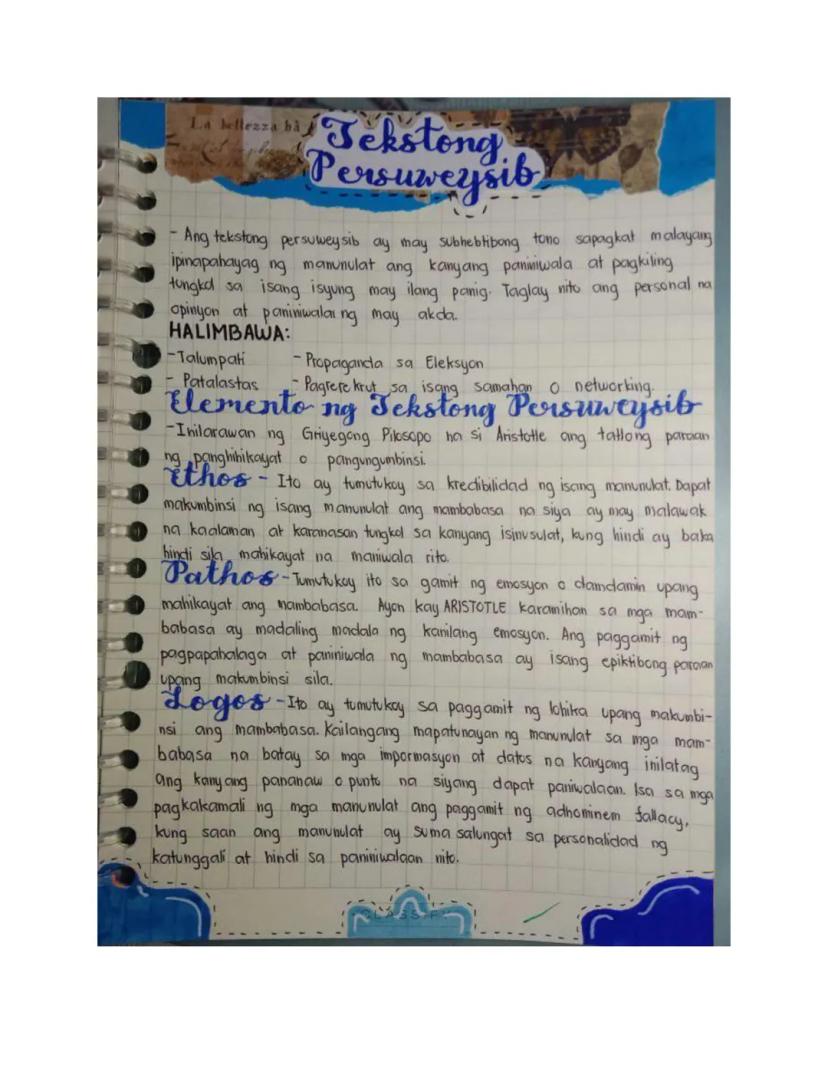 La bellezza hà
Tekstong
Persuweysib
- Ang tekstong persuweysib ay may subhebtibong tono sapagkat malayang
ipinapahayag ng manunulat ang kanyang paniniwala at pagkiling
tungkol sa isang isyung may ilang panig. Taglay nito ang personal na
opinyon at paniniwalai ng may akda.
HALIMBAWA:
-Talumpati - Propaganda sa Eleksyon
- Patalastas - Pagrerekrut sa isang samahan o networking.
Elemento ng Tekstong Persuweysib
-Inilarawan ng Griyegong Pilosopo na si Aristotle ang tatlong paraan
ng panghihikayat o pangungumbinsi.
Ethos - Ito ay tumutukoy sa kredibilidad ng isang manunulat. Dapat
makumbinsi ng isang manunulat ang mambabasa na siya ay may malawak
na kaalaman at karanasan tungkol sa kanyang isinusulat, kung hindi ay baka
hindi sila mahikayat na maniwala rito.
Pathos -Tumutukoy ito sa gamit ng emosyon o damdamin upang
mahikayat ang mambabasa. Ayon kay ARISTOTLE karamihan sa mga mam-
babasa ay madaling madala ng kanilang emosyon. Ang paggamit ng
pagpapahalaga at paniniwala ng mambabasa ay isang epiktibong paraan
upang makumbinsi sila.
Logos -Ito ay tumutukoy sa paggamit ng lohika upang makumbi-
nsi ang mambabasa. Kailangang mapatunayan ng manunulat sa mga mam-
babasa na batay sa mga impormasyon at datos na kanyang inilatag
ang kanyang pananaw o punto na siyang dapat paniwalaan. Isa sa mga
pagkakamali ng mga manunulat ang paggamit ng adhominem fallacy,
kung saan ang manunulat ay sumasalungat sa personalidad ng
katunggali at hindi sa paniniwalaan nito.